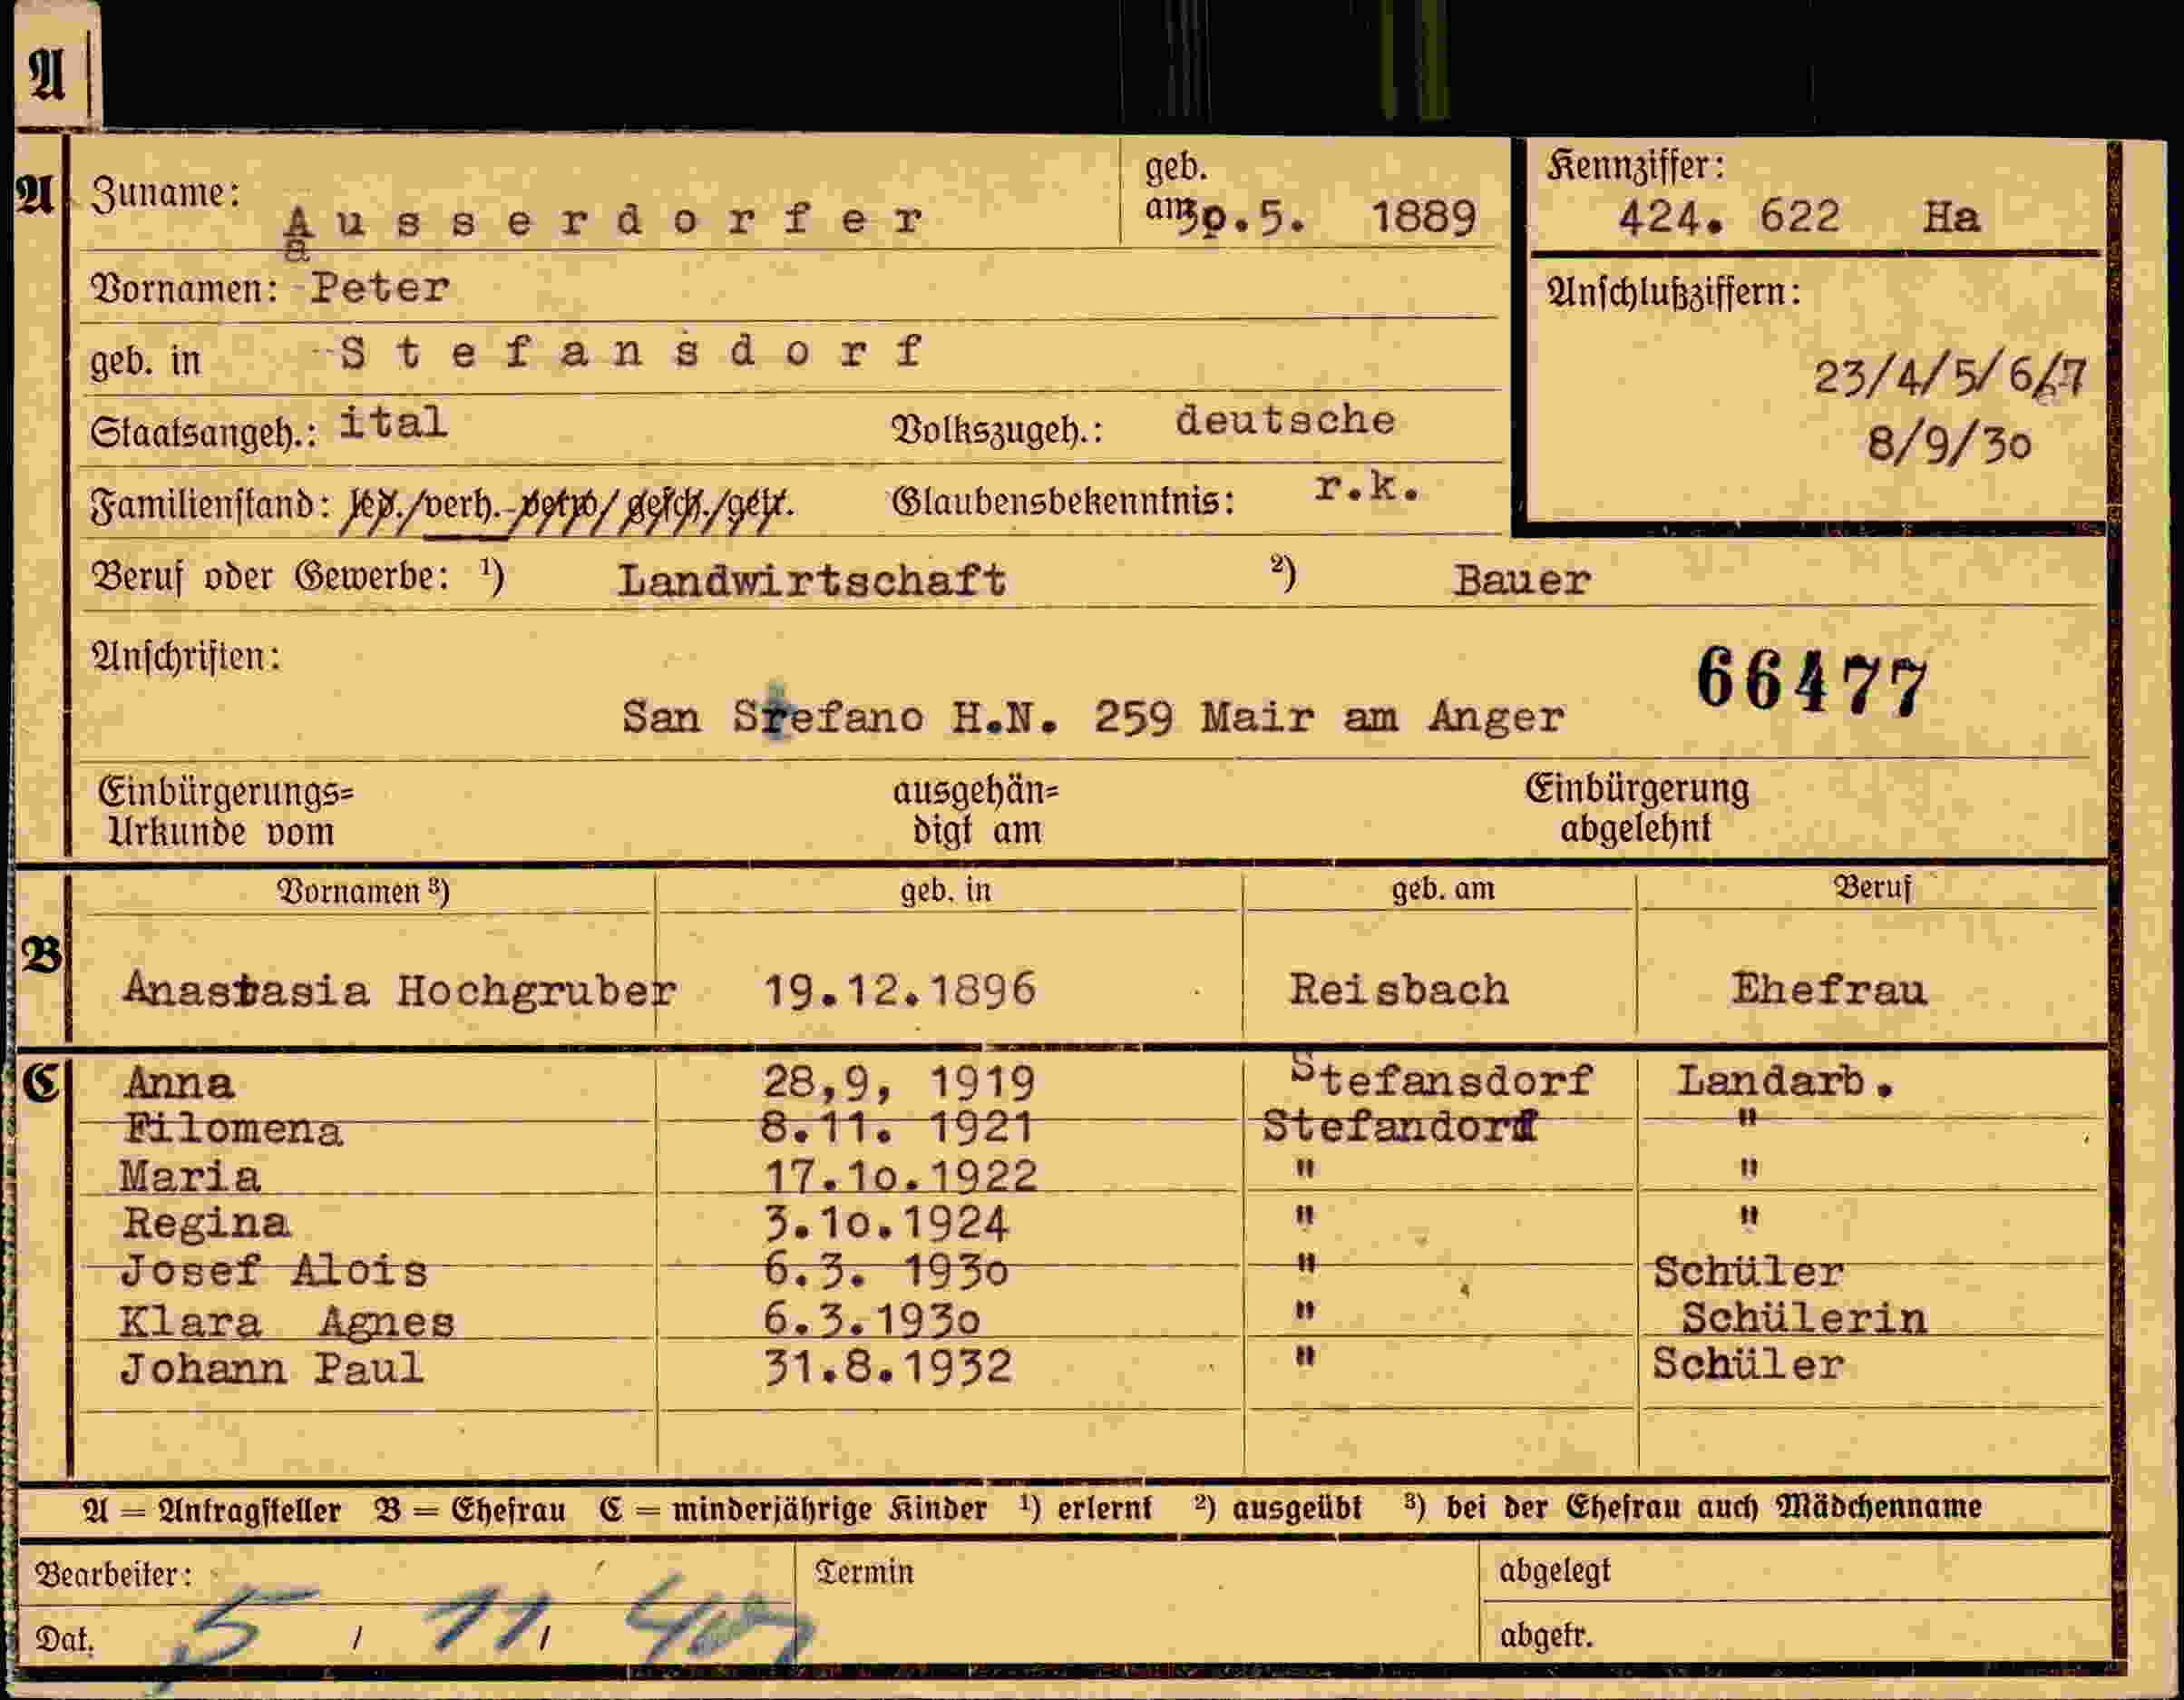 A
A Zuname: Ausserdorfer geb. am 30.5. 1889 Kennziffer: 424. 622 Ha
a
Vornamen: Peter Anschlußziffern:
geb. in Stefansdorf 23/4/5/6/7
Staatsangeh.: ital Volkszugeh.: deutsche 8/9/30
Familienstand: led./verh.-verw/gesch./getr. Glaubensbekenntnis: r.k.
Beruf oder Gewerbe: ¹) Landwirtschaft ²) Bauer
Anschriften: 66477
San Stefano H.N. 259 Mair am Anger
Einbürgerungs= ausgehän= Einbürgerung
Urkunde vom digt am abgelehnt
Vornamen ³) geb. in geb. am Beruf
B Anastasia Hochgruber 19.12.1896 Reisbach Ehefrau
C Anna 28,9, 1919 Stefansdorf Landarb.
Filomena 8.11. 1921 Stefandorf "
Maria 17.10.1922 " "
Regina 3.10.1924 " "
Josef Alois 6.3. 1930 " Schüler
Klara Agnes 6.3.1930 " Schülerin
Johann Paul 31.8.1932 " Schüler
A = Antragsteller B = Ehefrau C = minderjährige Kinder ¹) erlernt ²) ausgeübt ³) bei der Ehefrau auch Mädchenname
Bearbeiter: Termin abgelegt
Dat. 5 / 11 / 40 abgetr.